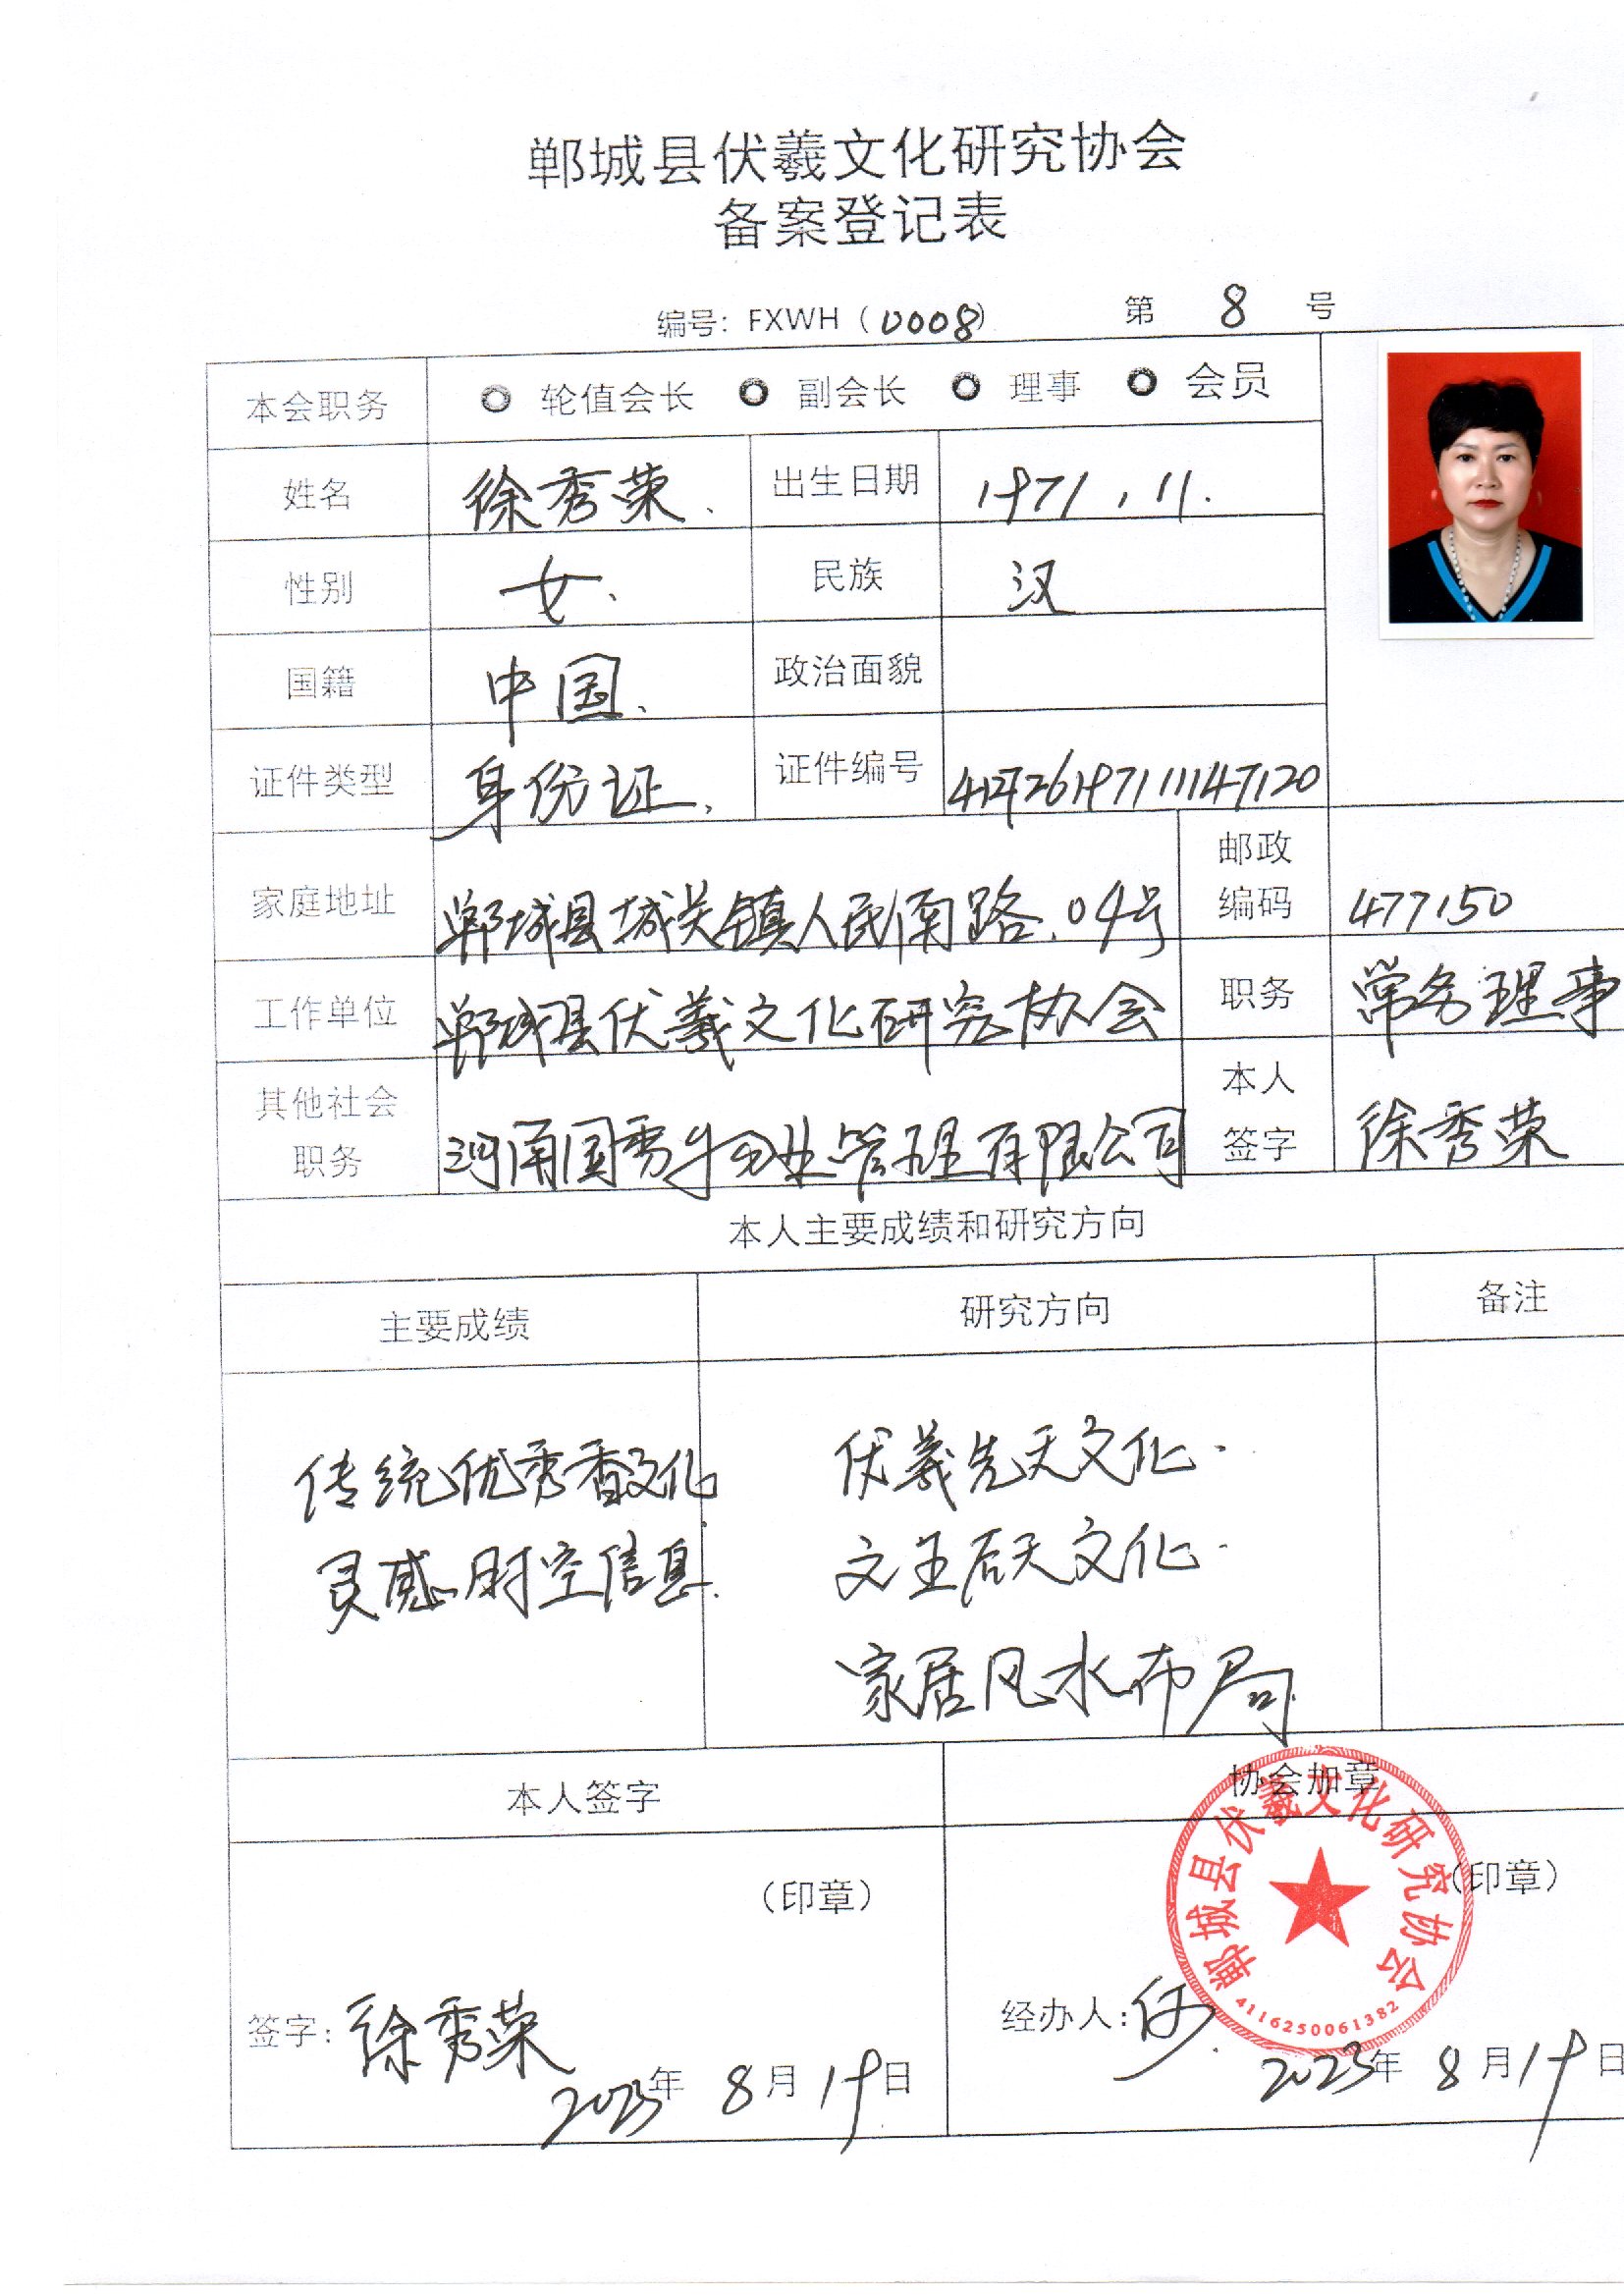 郸城县伏羲文化研究协会
备案登记表
编号：FXWH（0008） 第 8 号
本会职务 轮值会长 副会长 理事 会员
姓名 徐秀荣 出生日期 1971.11.
性别 女 民族 汉
国籍 中国 政治面貌
证件类型 身份证 证件编号
家庭地址 郸城县城关镇人民南路.04号 邮政编码 477150
工作单位 郸城县伏羲文化研究协会 职务 常务理事
其他社会职务 河南国秀物业管理有限公司 本人签字 徐秀荣
本人主要成绩和研究方向
主要成绩 研究方向 备注
传统优秀香文化
灵感时空信息
伏羲先天文化
文王后天文化
家居风水布局
本人签字 协会加章
（印章） （印章）
郸城县伏羲文化研究协会
4116250061382
签字：徐秀荣 经办人：
2023年 8月19日 2023年 8月19日